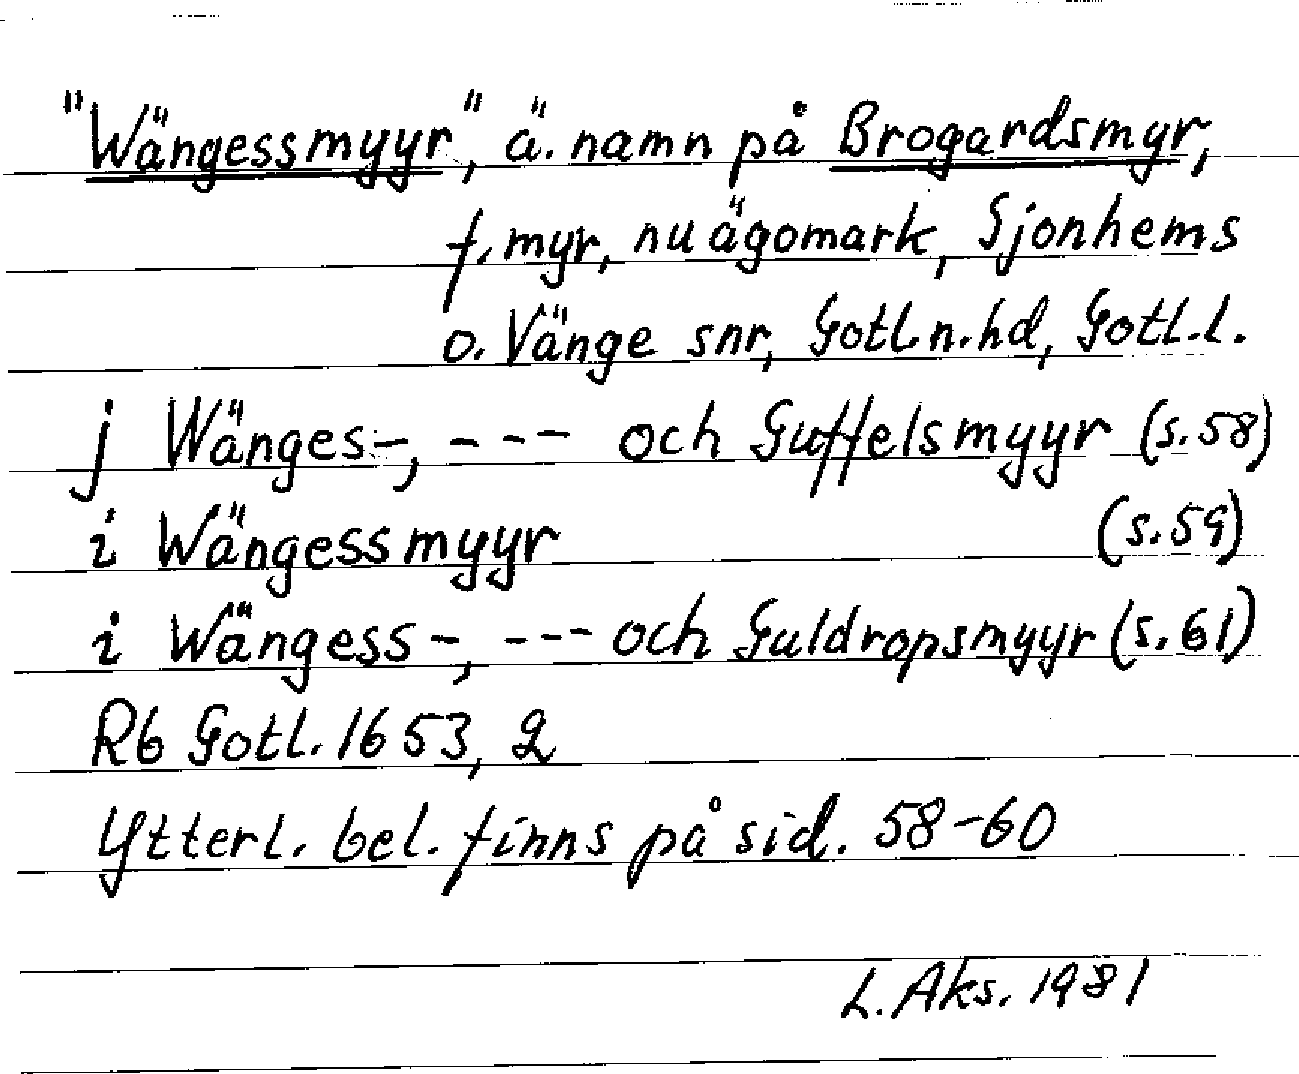 "Wängessmyyr", ä. namn på Brogardsmyr,
f. myr, nu ägomark, Sjonhems
o. Vänge snr, Gotl.n.hd, Gotl.l.
j Wänges-, - - - - och Guffelsmyyr (s.58)
i Wängessmyyr (s.59)
i Wängess-, - - - och Guldropsmyyr (s.61)
Rb Gotl. 1653, 2
Ytterl. bel. finns på sid. 58-60
L. Aks. 1981